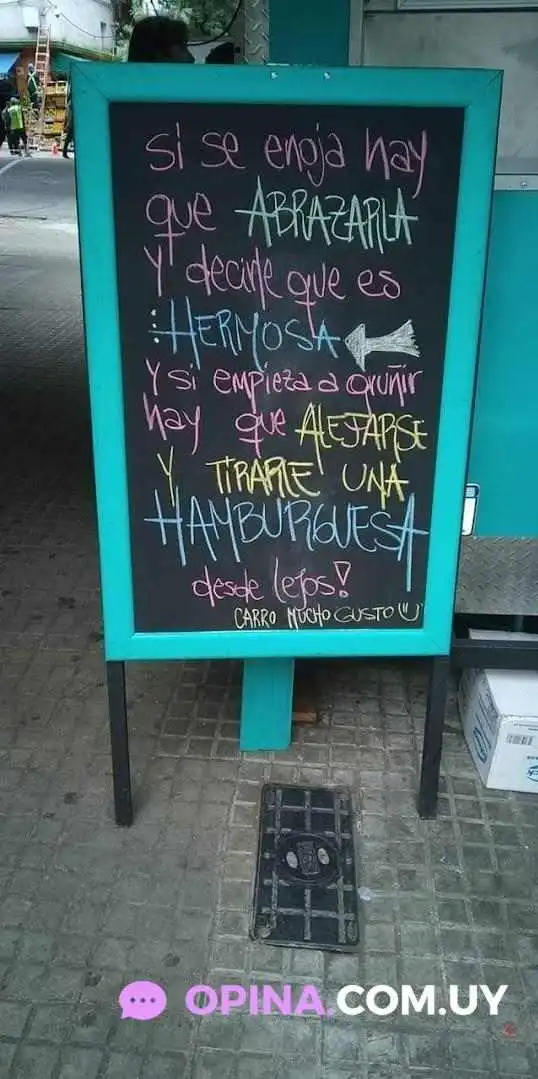 si se enoja hay
que ABRAZARLA
Y decirle que es
: HERMOSA
Y si empieza a gruñir
hay que ALEJARSE
Y TIRARLE UNA
HAMBURGUESA
desde lejos!
CARRO MUCHO GUSTO
OPINA.COM.UY